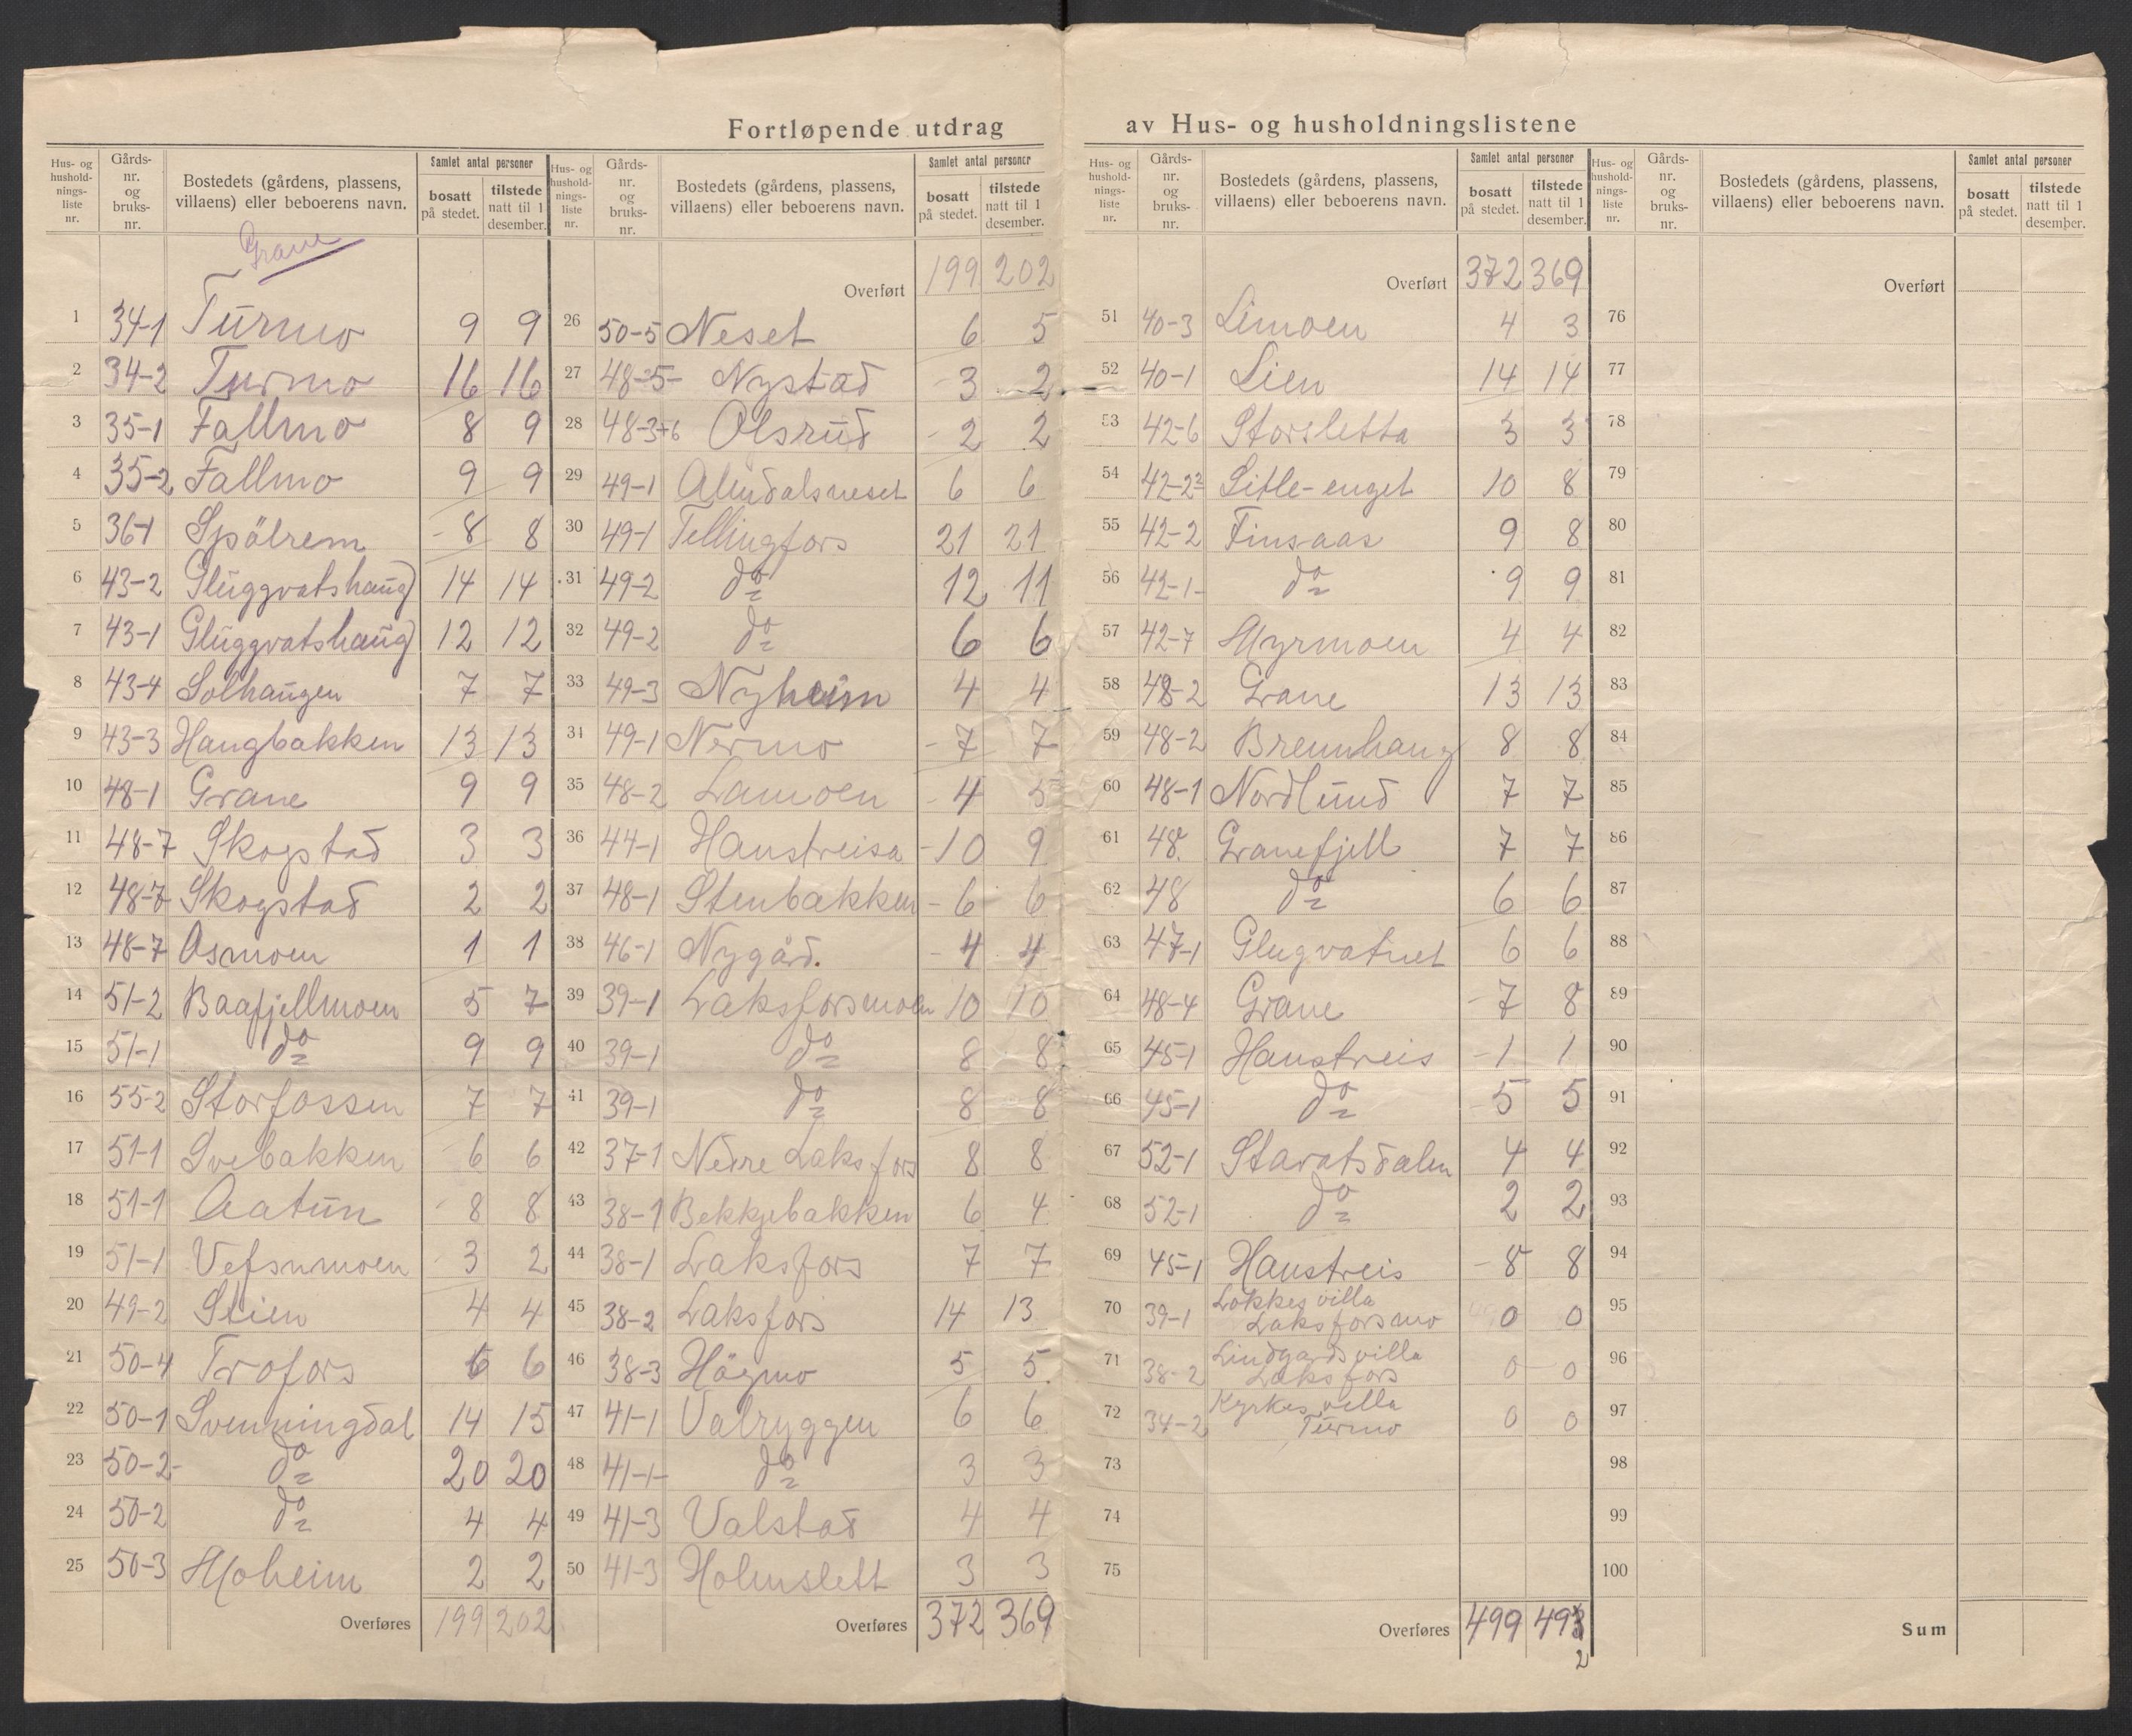 Fortløpende utdrag av Hus- og husholdningslistene
Hus- og husholdnings-liste nr. Gårds-nr. og bruks-nr. Bostedets (gårdens, plassens, villaens) eller beboerens navn. Samlet antal personer bosatt på stedet. tilstede natt til 1 desember.
Grane
1 34-1 Turmo 9 9
2 34-2 Turmo 16 16
3 35-1 Fallmo 8 9
4 35-2 Fallmo 9 9
5 36-1 Spölrem 8 8
6 43-2 Gluggvatshaug 14 14
7 43-1 Gluggvatshaug 12 12
8 43-4 Solhaugen 7 7
9 43-3 Haugbakken 13 13
10 48-1 Grane 9 9
11 48-7 Skogstad 3 3
12 48-7 Skogstad 2 2
13 48-7 Osmoen 1 1
14 51-2 Baafjellmoen 5 7
15 51-1 do 9 9
16 55-2 Storfossen 7 7
17 51-1 Svebakken 6 6
18 51-1 Aatun 8 8
19 51-1 Vefsnmoen 3 2
20 49-2 Stien 4 4
21 50-4 Trofors 6 6
22 50-1 Svenningdal 14 15
23 50-2 do 20 20
24 50-2 do 4 4
25 50-3 Moheim 2 2
Overføres 199 202
Hus- og husholdnings-liste nr. Gårds-nr. og bruks-nr. Bostedets (gårdens, plassens, villaens) eller beboerens navn. Samlet antal personer bosatt på stedet. tilstede natt til 1 desember.
Overført 199 202
26 50-5 Neset 6 5
27 48-5- Nystad 3 2
28 48-3+6 Olsrud 2 2
29 49-1 Almdalsneset 6 6
30 49-1 Fellingfors 21 21
31 49-2 do 12 11
32 49-2 do 6 6
33 49-3 Nyheim 4 4
34 49-1 Nermo 7 7
35 48-2 Lamoen 4 5
36 44-1 Haustreisa 10 9
37 48-1 Stenbakken 6 6
38 46-1 Nygård. 4 4
39 39-1 Laksforsmoen 10 10
40 39-1 do 8 8
41 39-1 do 8 8
42 37-1 Nedre Laksfors 8 8
43 38-1 Bekkjebakken 6 4
44 38-1 Laksfors 7 7
45 38-2 Laksfors 14 13
46 38-3 Högmo 5 5
47 41-1 Valryggen 6 6
48 41-1- do 3 3
49 41-3 Valstad 4 4
50 41-3 Holmslett 3 3
Overføres 372 369
Hus- og husholdnings-liste nr. Gårds-nr. og bruks-nr. Bostedets (gårdens, plassens, villaens) eller beboerens navn. Samlet antal personer bosatt på stedet. tilstede natt til 1 desember.
Overført 372 369
51 40-3 Limoen 4 3
52 40-1 Lien 14 14
53 42-6 Storsletta 3 3
54 42-2² Litle-enget 10 8
55 42-2 Finsaas 9 8
56 42-1- do 9 9
57 42-7 Myrmoen 4 4
58 48-2 Grane 13 13
59 48-2 Brennhaug 8 8
60 48-1 Nordlund 7 7
61 48. Granefjell 7 7
62 48 do 6 6
63 47-1 Glugvatnet 6 6
64 48-4 Grane 7 8
65 45-1 Haustreis 1 1
66 45-1 do 5 5
67 52-1 Stavatsdalen 4 4
68 52-1 do 2 2
69 45-1 Haustreis 8 8
70 39-1 Lokkes villa
Laksforsmo 0 0
71 38-2 Lindgards villa
Laksfors 0 0
72 34-2 Kyrkes villa
Turmo 0 0
73
74
75
Overføres 499 493
2
Hus- og husholdnings-liste nr. Gårds-nr. og bruks-nr. Bostedets (gårdens, plassens, villaens) eller beboerens navn. Samlet antal personer bosatt på stedet. tilstede natt til 1 desember.
Overført
76
77
78
79
80
81
82
83
84
85
86
87
88
89
90
91
92
93
94
95
96
97
98
99
100
Sum